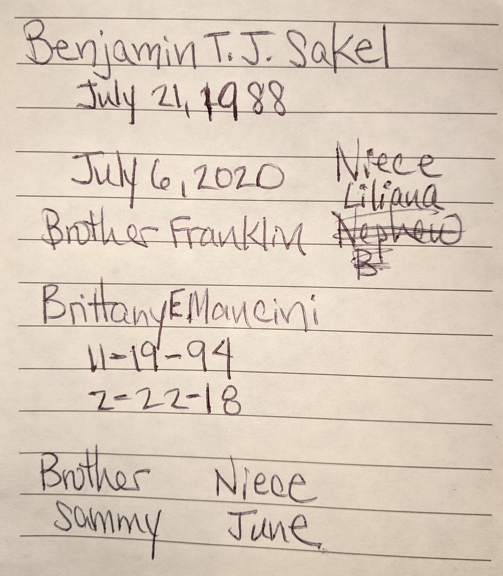 Benjamin T. J. Sakel
July 21, 1988
July 6, 2020 Niece
Liliana
Brother Franklin Nephew
B
Brittany E Mancini
11-19-94
2-22-18
Brother Niece
Sammy June